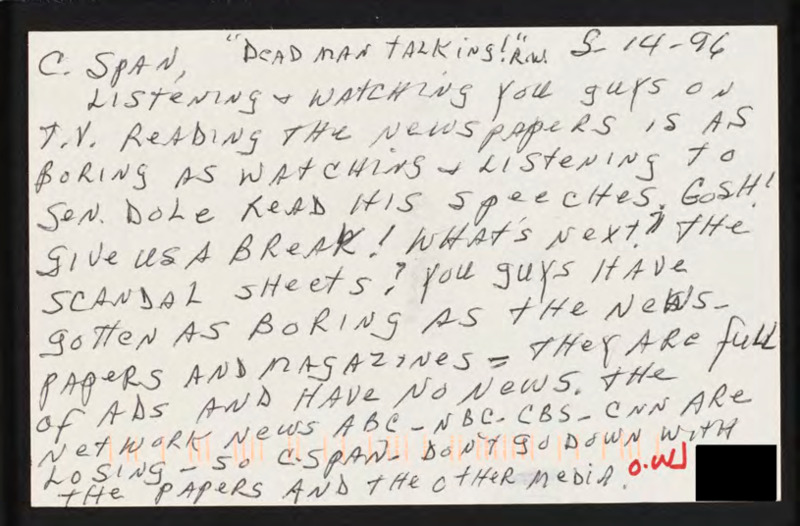 "DEAD MAN TALKING!" R.W. 5-14-96
C. SPAN,
LISTENING & WATCHING YOU GUYS ON
T.V. READING THE NEWSPAPERS IS AS
BORING AS WATCHING & LISTENING TO
SEN. DOLE READ HIS SPEECHES. GOSH!
GIVE US A BREAK! WHAT'S NEXT? THE
SCANDAL SHEETS? YOU GUYS HAVE
GOTTEN AS BORING AS THE NEWS-
PAPERS AND MAGAZINES = THEY ARE FULL
OF ADS AND HAVE NO NEWS. THE
NETWORK NEWS ABC-NBC-CBS-CNN ARE
LOSING - SO C-SPAN- DON'T GO DOWN WITH
THE PAPERS AND THE OTHER MEDIA.